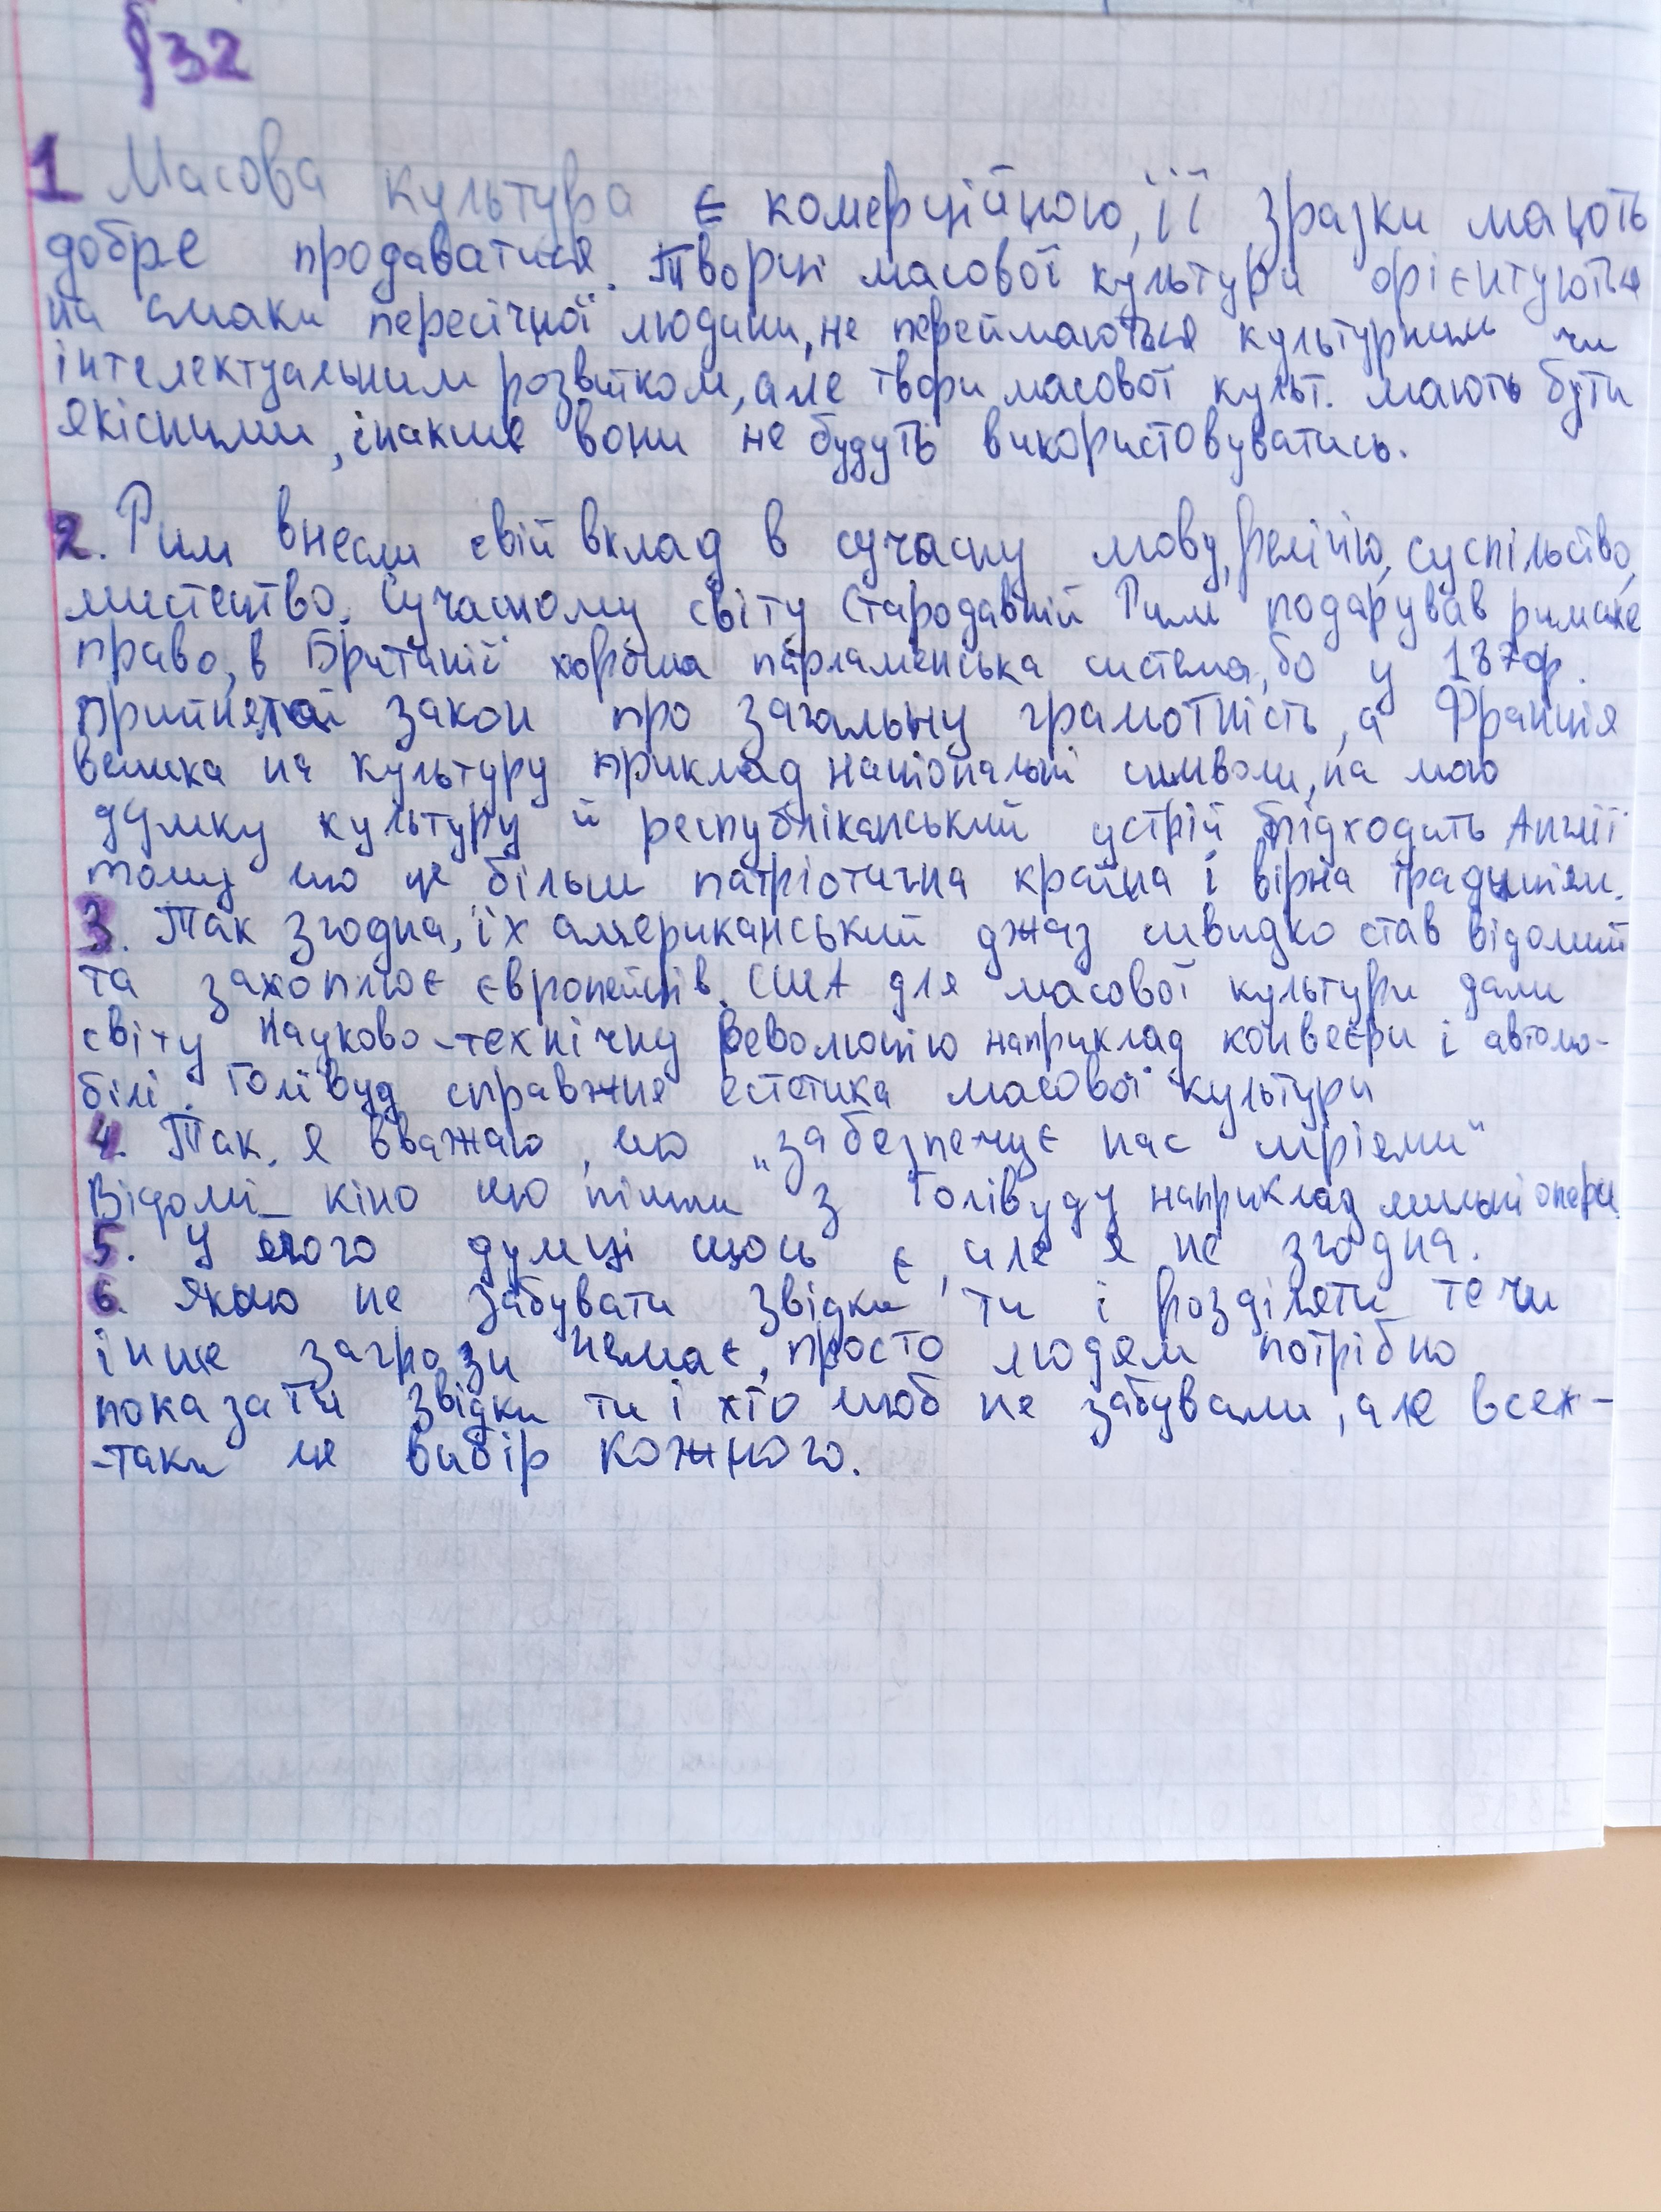 §32
1 Масова культура є комерційною, її зразки мають
добре продаватися. Творці масової культури орієнтуються
на смаки пересічної людини, не переймаються культурним чи
інтелектуальним розвитком, але твори масової культ. мають бути
якісними, інакше вони не будуть використовуватись.
2. Рим внесли свій вклад в сучасну мову, релігію, суспільство,
мистецтво. Сучасному світу Стародавній Рим подарував римске
право, в Британії хороша парламенська система, бо у 1870р.
прийнятой закон про загальну грамотність, а Франція
велика на культуру приклад національні символи, на мою
думку культуру й республіканський устрій підходить Англії
тому що це більш патріотична країна і вірна традиціям.
3. Так згодна, їх американський джаз швидко став відомий
та захоплює європейців. США для масової культури дали
світу Науково-технічну революцію наприклад конвеєри і автомо-
білі. Голівуд справжня естетика масової культури
4. Так, я вважаю, що „забезпечує нас мріями"
Відомі кіно що пішли з Голівуду наприклад мильні опери
5. У його думці щось є, але я не згодна.
6. Якщо не забувати звідки ти і розділяти те чи
інше загрози немає, просто людям потрібно
показати звідки ти і хто щоб не забували, але всеж-
-таки це вибір кожного.